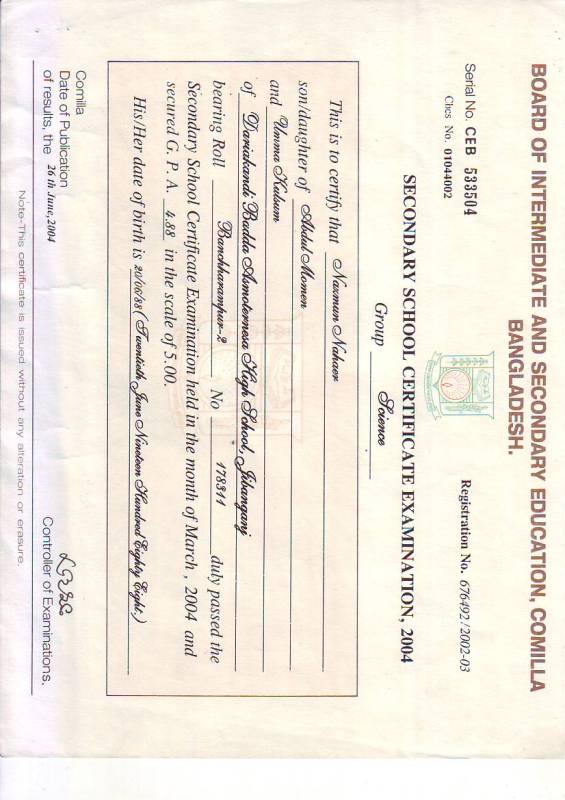 BOARD OF INTERMEDIATE AND SECONDARY EDUCATION, COMILLA
BANGLADESH.
Serial No. CEB 533504
Chcs No. 01044002
Registration No. 676492/2002-03
SECONDARY SCHOOL CERTIFICATE EXAMINATION, 2004
Group Science
This is to certify that Nazmun Nahaer
son/daughter of Abdul Momen
and Umma Kulsum
of Dariakandi Budda Asmoternesa High School, Jibanganj
bearing Roll Banchharampur-2 No 178311 duly passed the
Secondary School Certificate Examination held in the month of March , 2004 and
secured G. P. A. 4.88 in the scale of 5.00.
His/Her date of birth is 20/06/88 ( Twentieth June Nineteen Hundred Eighty Eight.)
Comilla
Date of Publication
of results, the 26 th June,2004
Controller of Examinations.
Note-This certificate is issued without any alteration or erasure.